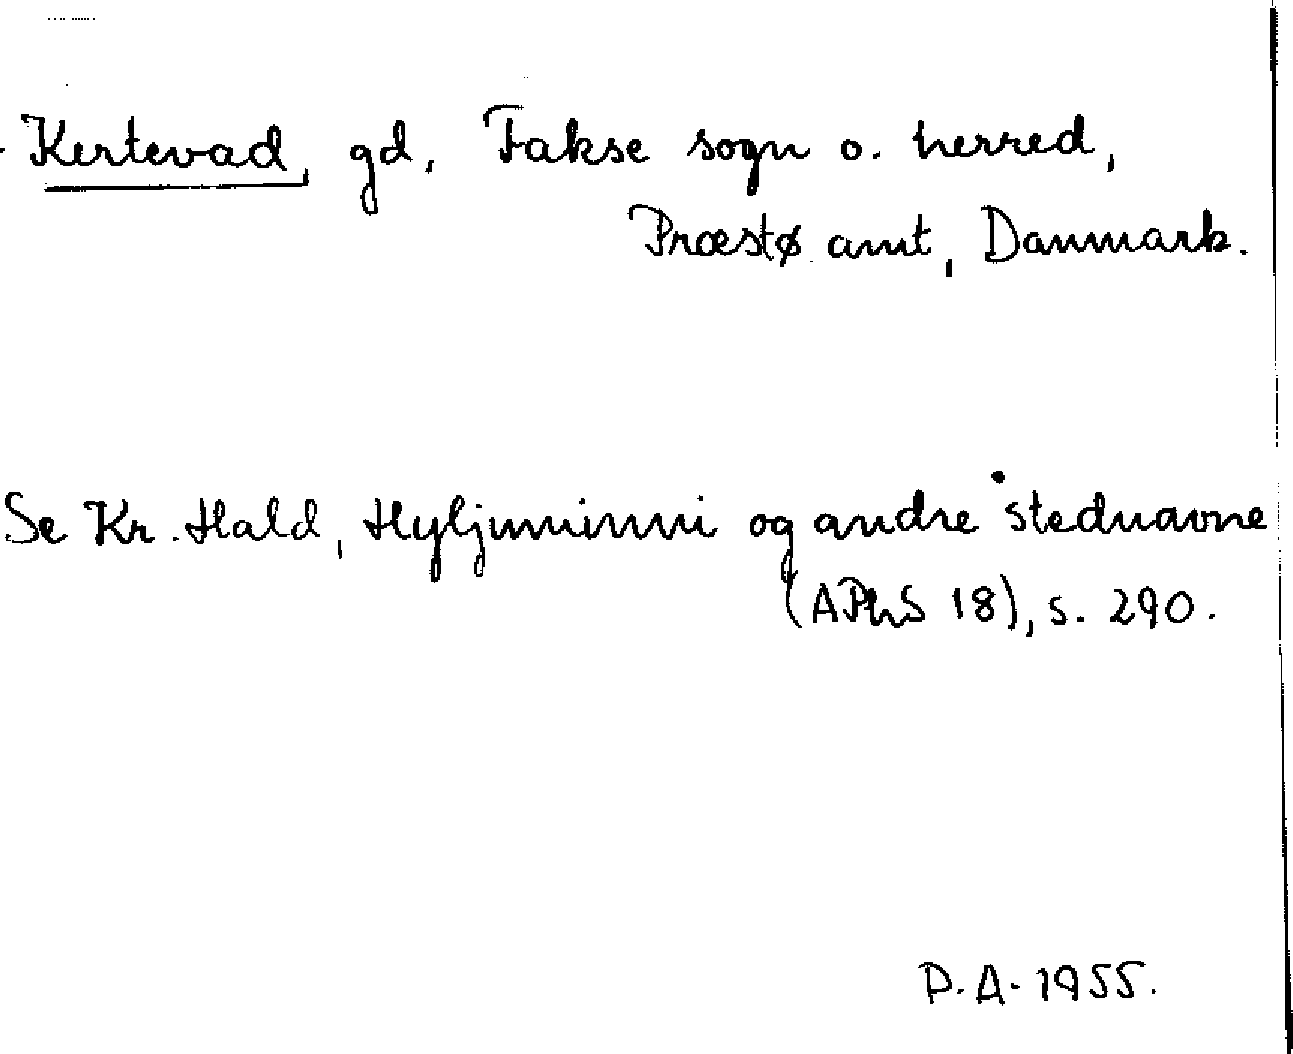 Kertevad, gd, Fakse sogn o. herred,
Præstø amt, Danmark.
Se Kr. Hald, Hyljuminni og andre stednavne
(APhS 18), s. 290.
P.A. 1955.